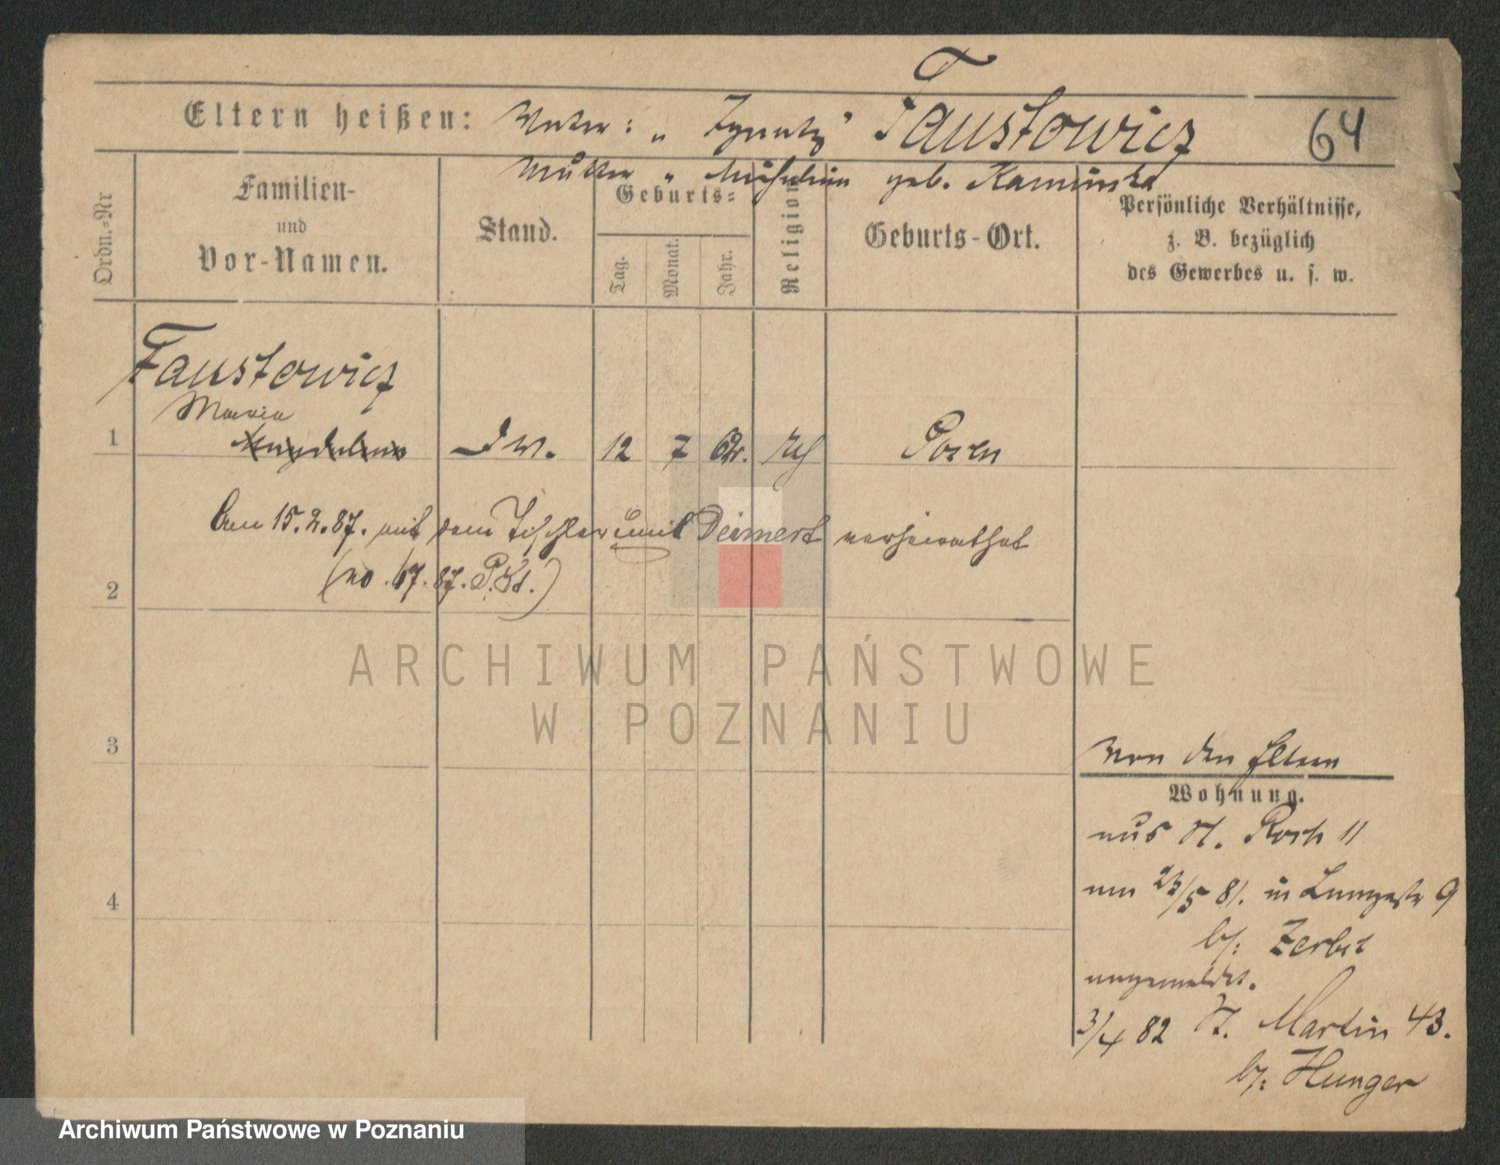 Eltern heißen: Vater: „ Ignatz Faustowicz
64
Mutter „ geb. Kaminska
Ordn.-Nr
Familien-
und
Vor-Namen.
Stand.
Geburts-
Tag.
Monat.
Jahr.
Religion
Geburts-Ort.
Persönliche Verhältnisse,
z. B. bezüglich
des Gewerbes u. s. w.
Faustowicz
Maria
1 Magdalena 12 7 Posen
Am 15.2.87. mit dem Tischler Emil Deimert verheirathet
(no. 67. 87. P. St.)
2
ARCHIWUM PAŃSTWOWE
W POZNANIU
3
von den Eltern
Wohnung.
aus St. Roch 11
am 23/5 81. in Langestr 9
b/: Zerbst
angemeldet.
3/4 82 St. Martin 43.
b/: Hunger
4
Archiwum Państwowe w Poznaniu